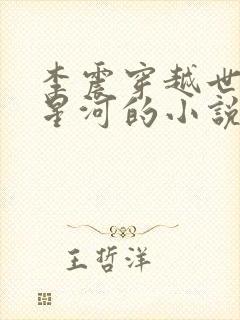 李震穿越世
星河的小說
王哲洋